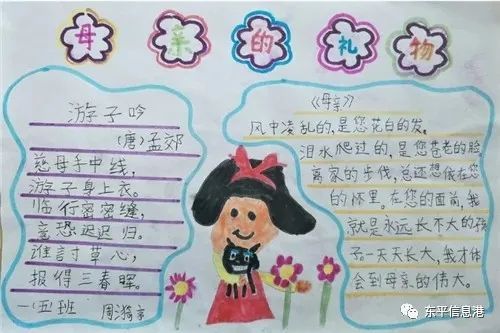 母亲的礼物
游子吟
(唐)孟郊
慈母手中线,
游子身上衣。
临行密密缝,
意恐迟迟归。
谁言寸草心,
报得三春晖。
一(5)班 周
《母亲》
风中凌乱的,是您花白的发。
泪水爬过的,是您苍老的脸
离家的步伐,总还想偎在您
的怀里。在您的面前,我
就是永远长不大的孩
子一天天长大,我才体
会到母亲的伟大。
东平信息港